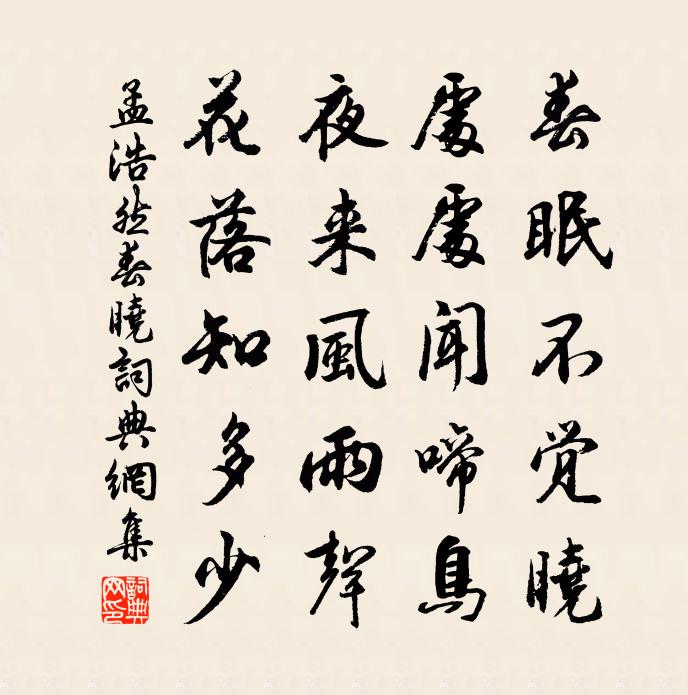 春眠不觉曉
處處聞啼鳥
夜来風雨聲
花落知多少
孟浩然春曉詞典網集
詞典網印